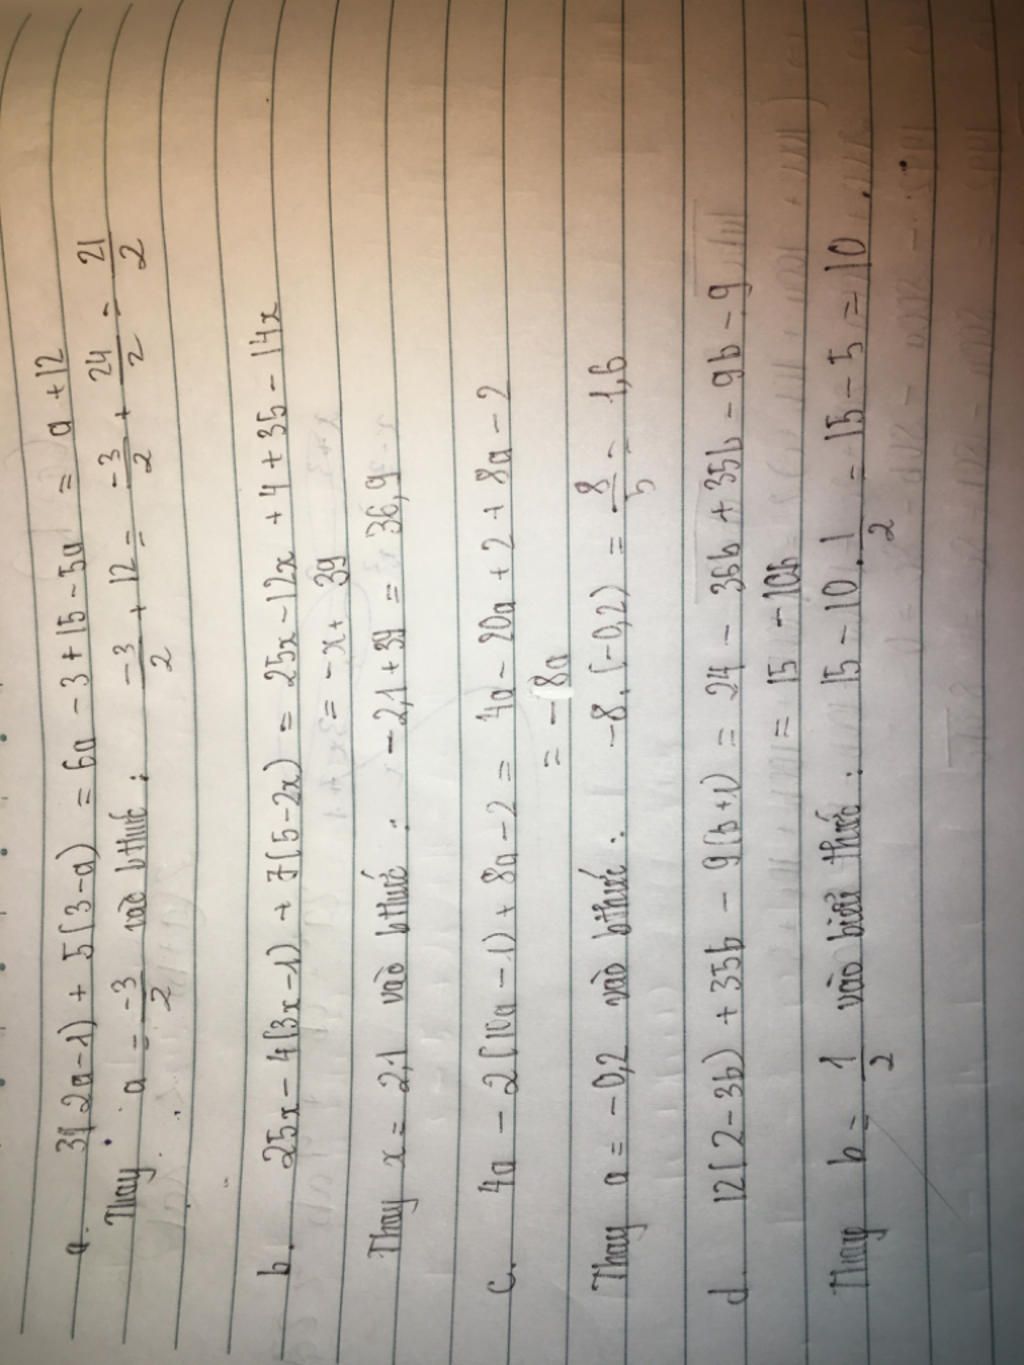 a. 3(2a-1) + 5(3-a) = 6a - 3 + 15 - 5a = a + 12
Thay a = -3/2 vào bthức : -3/2 + 12 = -3/2 + 24/2 = 21/2
b. 25x - 4(3x-1) + 7(5-2x) = 25x - 12x + 4 + 35 - 14x
= -x + 39
Thay x = 2,1 vào bthức : -2,1 + 39 = 36,9
c. 4a - 2(10a - 1) + 8a - 2 = 4a - 20a + 2 + 8a - 2
= -8a
Thay a = -0,2 vào bthức : -8.(-0,2) = 8/5 = 1,6
d. 12(2-3b) + 35b - 9(b+1) = 24 - 36b + 35b - 9b - 9
= 15 - 10b
Thay b = 1/2 vào biểu thức : 15 - 10 . 1/2 = 15 - 5 = 10.